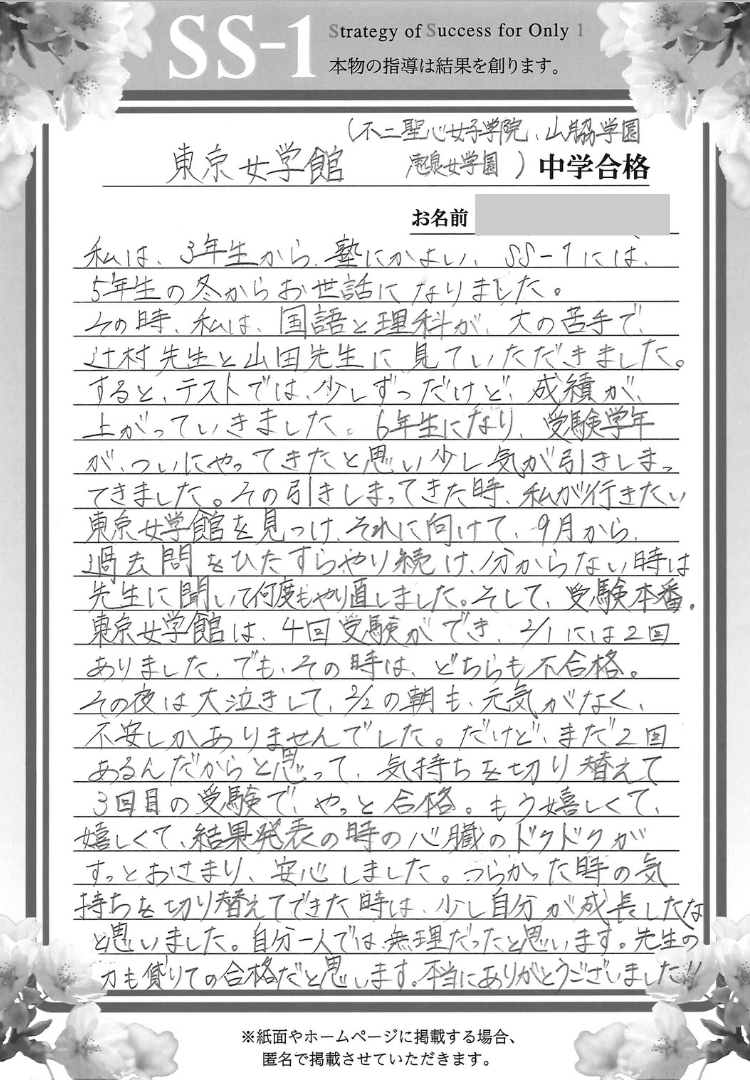 SS-1 Strategy of Success for Only 1
本物の指導は結果を創ります。
(不二聖心女子学院、山脇学園
東京女学館 恵泉女学園) 中学合格
お名前
私は、3年生から、塾にかよい、SS-1には、
5年生の冬からお世話になりました。
その時、私は、国語と理科が、大の苦手で、
辻村先生と山田先生に見ていただきました。
すると、テストでは、少しずつだけど、成績が、
上がっていきました。6年生になり、受験学年
が、ついにやってきたと思い少し気が引きしまっ
てきました。その引きしまってきた時、私が行きたい
東京女学館を見つけ、それに向けて、9月から、
過去問をひたすらやり続け、分からない時は
先生に聞いて何度もやり直しました。そして、受験本番。
東京女学館は、4回受験ができ、2/1には2回
ありました。でも、その時は、どちらも不合格。
その夜は大泣きして、2/2の朝も、元気がなく、
不安しかありませんでした。だけど、まだ2回
あるんだからと思って、気持ちを切り替えて
3回目の受験で、やっと合格。もう嬉しくて、
嬉しくて、結果発表の時の心臓のドクドクが
すっとおさまり、安心しました。つらかった時の気
持ちを切り替えてできた時は、少し自分が成長したな
と思いました。自分一人では無理だったと思います。先生の
力も貸りての合格だと思します。本当にありがとうございました!!
※紙面やホームページに掲載する場合、
匿名で掲載させていただきます。